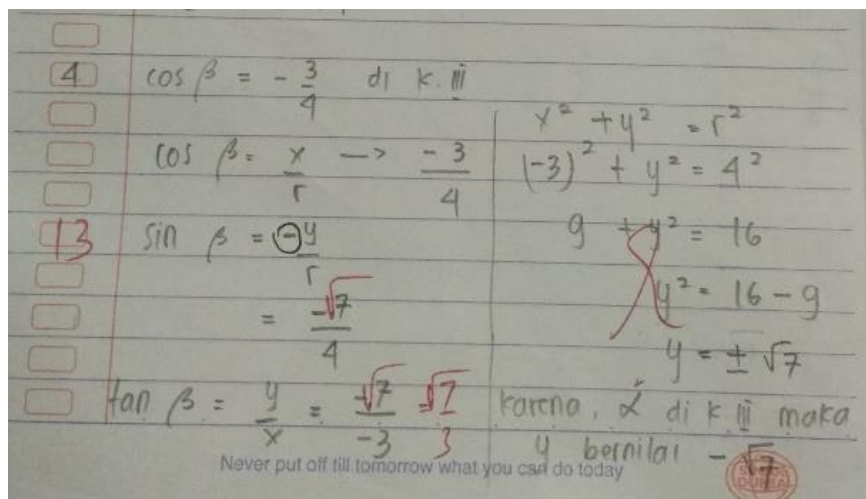 4 cos β = - 3/4 di k. III
cos β = x/r —> -3/4
13 sin β = -y/r
= -√7/4
tan β = y/x = -√7/-3 = √7/3
x² + y² = r²
(-3)² + y² = 4²
9 + y² = 16
y² = 16 - 9
y = ± √7
karena, α di k III maka
y bernilai - √7
Never put off till tomorrow what you can do today